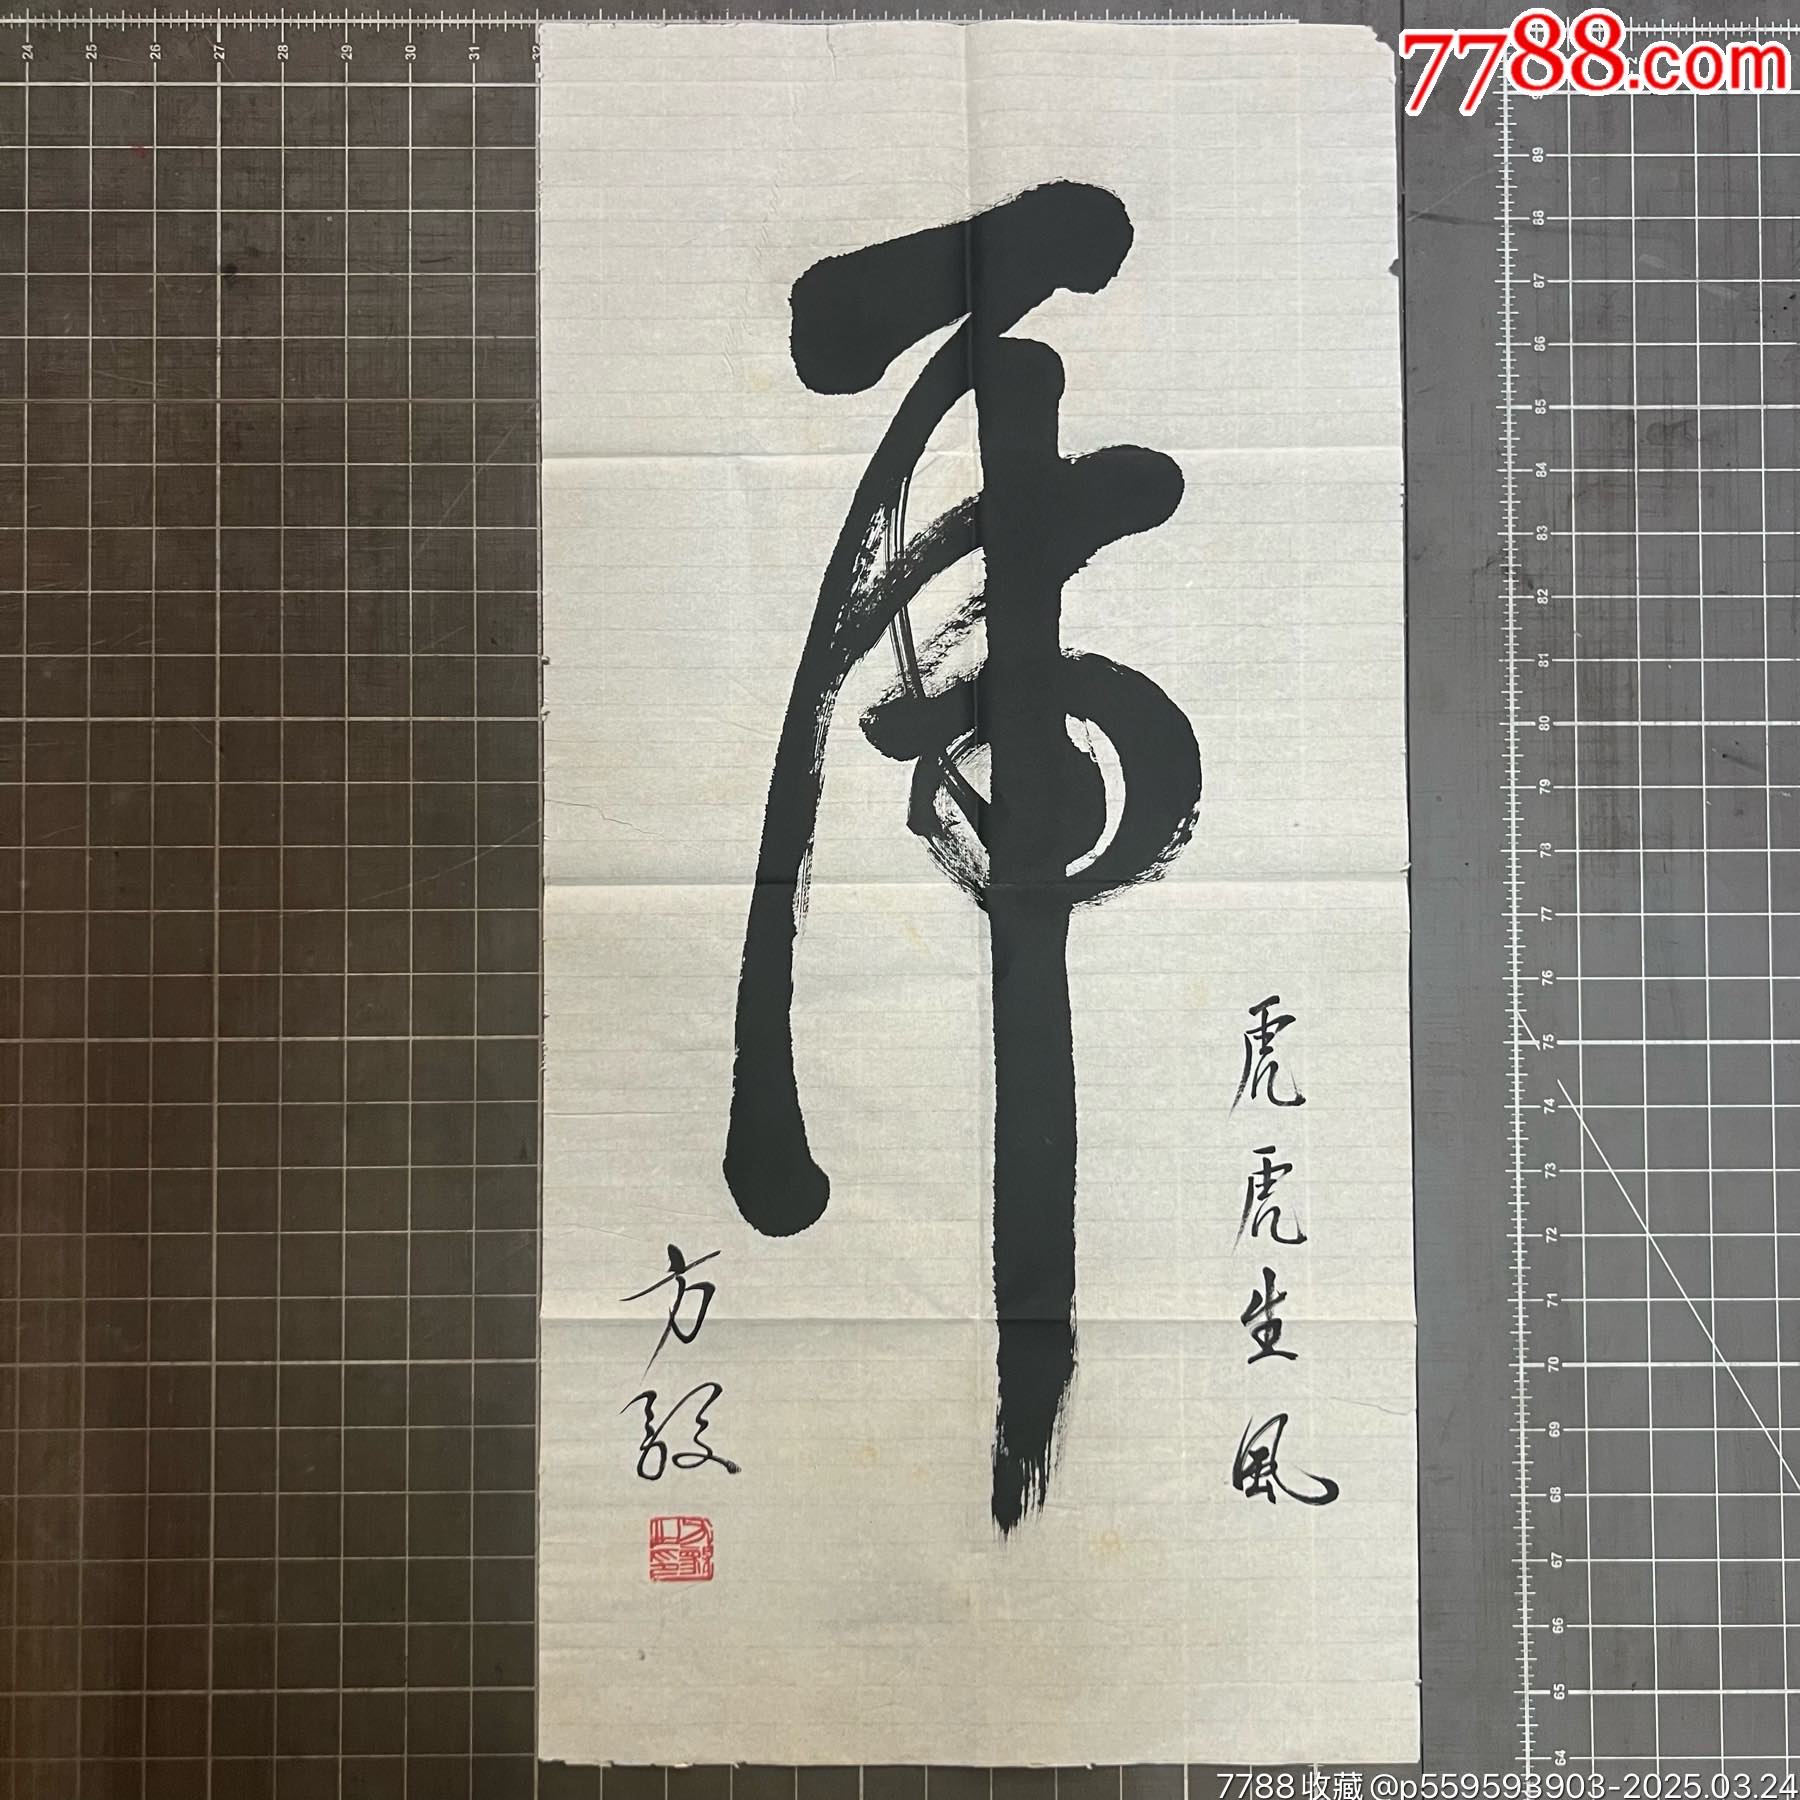 7788.com
24 25 26 27 28 29 30 31 32
虎
虎虎生风
方毅
89
88
87
86
85
84
83
82
81
80
79
78
77
76
75
74
73
72
71
70
69
68
67
66
65
64
7788收藏@p559593903-2025.03.24